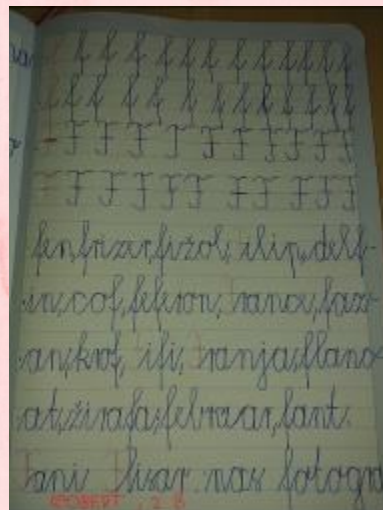 f f f f f f f f f f f f
f f f f f f f f f f f f
F F F F F F F F F F F
F F F F F F F F F F
fen, frizer, fižol, Filip, delf-
in, cof, feferon, Franci, faz-
an, krof, Fifi, Franja, flanc-
at, žirafa, februar, fant.
Fani Flisar nas fotogra
ROBERT, 2. B